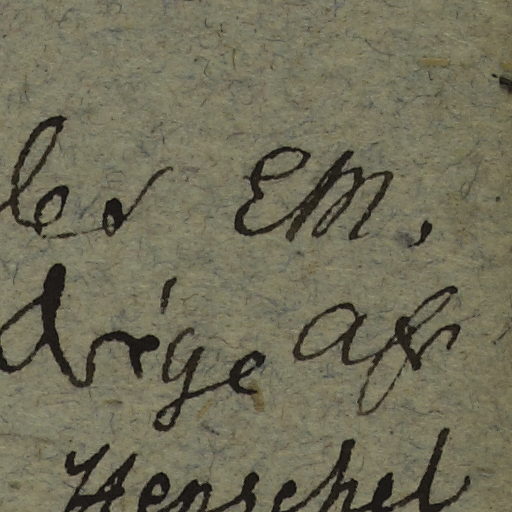 ler EM.
drige afr
Henschel